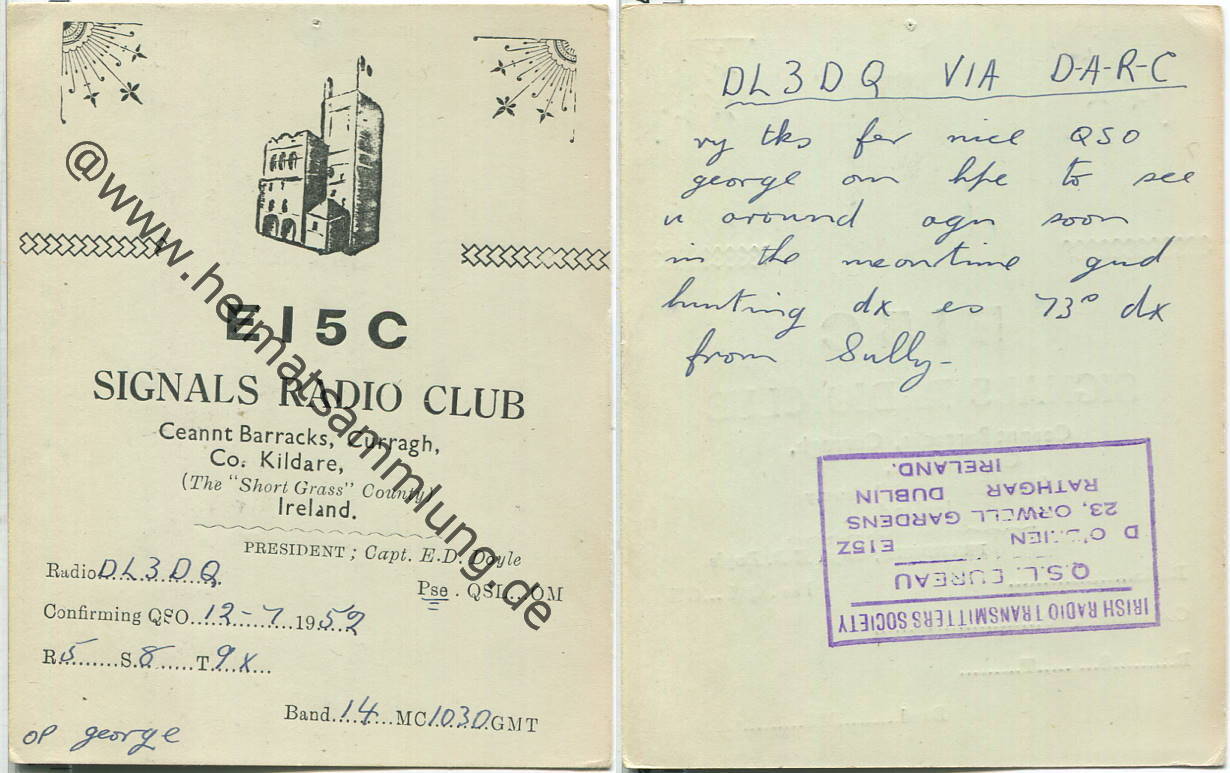 @www.heimatsammlung.de
EI5C
SIGNALS RADIO CLUB
Ceannt Barracks, Curragh,
Co. Kildare,
(The "Short Grass" County)
Ireland.
PRESIDENT ; Capt. E.D. Doyle
Radio DL3DQ.
Pse. QSL. OM
Confirming QSO...12-7...1952
R5.......S.8.....T.9x...
Band..14...MC1030.GMT
OP george
DL3DQ VIA D-A-R-C
vy tks fer nice QSO
george om hpe to see
u around agn soon
in the meantime gud
hunting dx es 73s dx
from Sully-
IRISH RADIO TRANSMITTERS SOCIETY
Q.S.L. BUREAU
D O'BRIEN EI5Z
23, ORWELL GARDENS
RATHGAR DUBLIN
IRELAND.